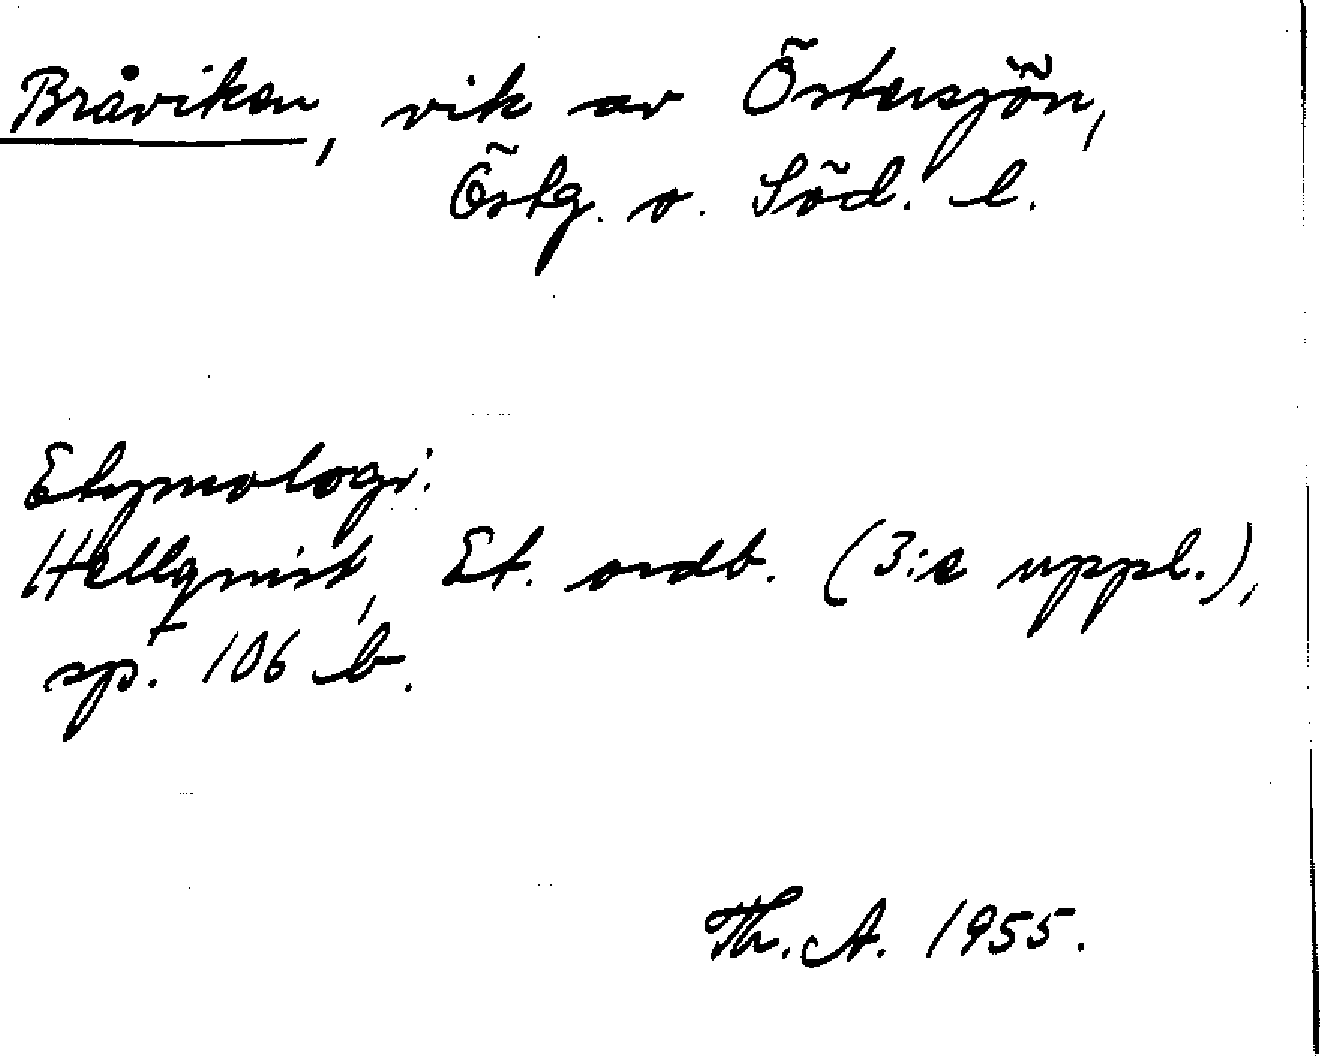 Bråviken, vik av Östersjön,
Östg. o. Söd. l.
Etymologi:
Hellquist, Et. ordb. (3:e uppl.),
sp. 106 b.
Th. A. 1955.